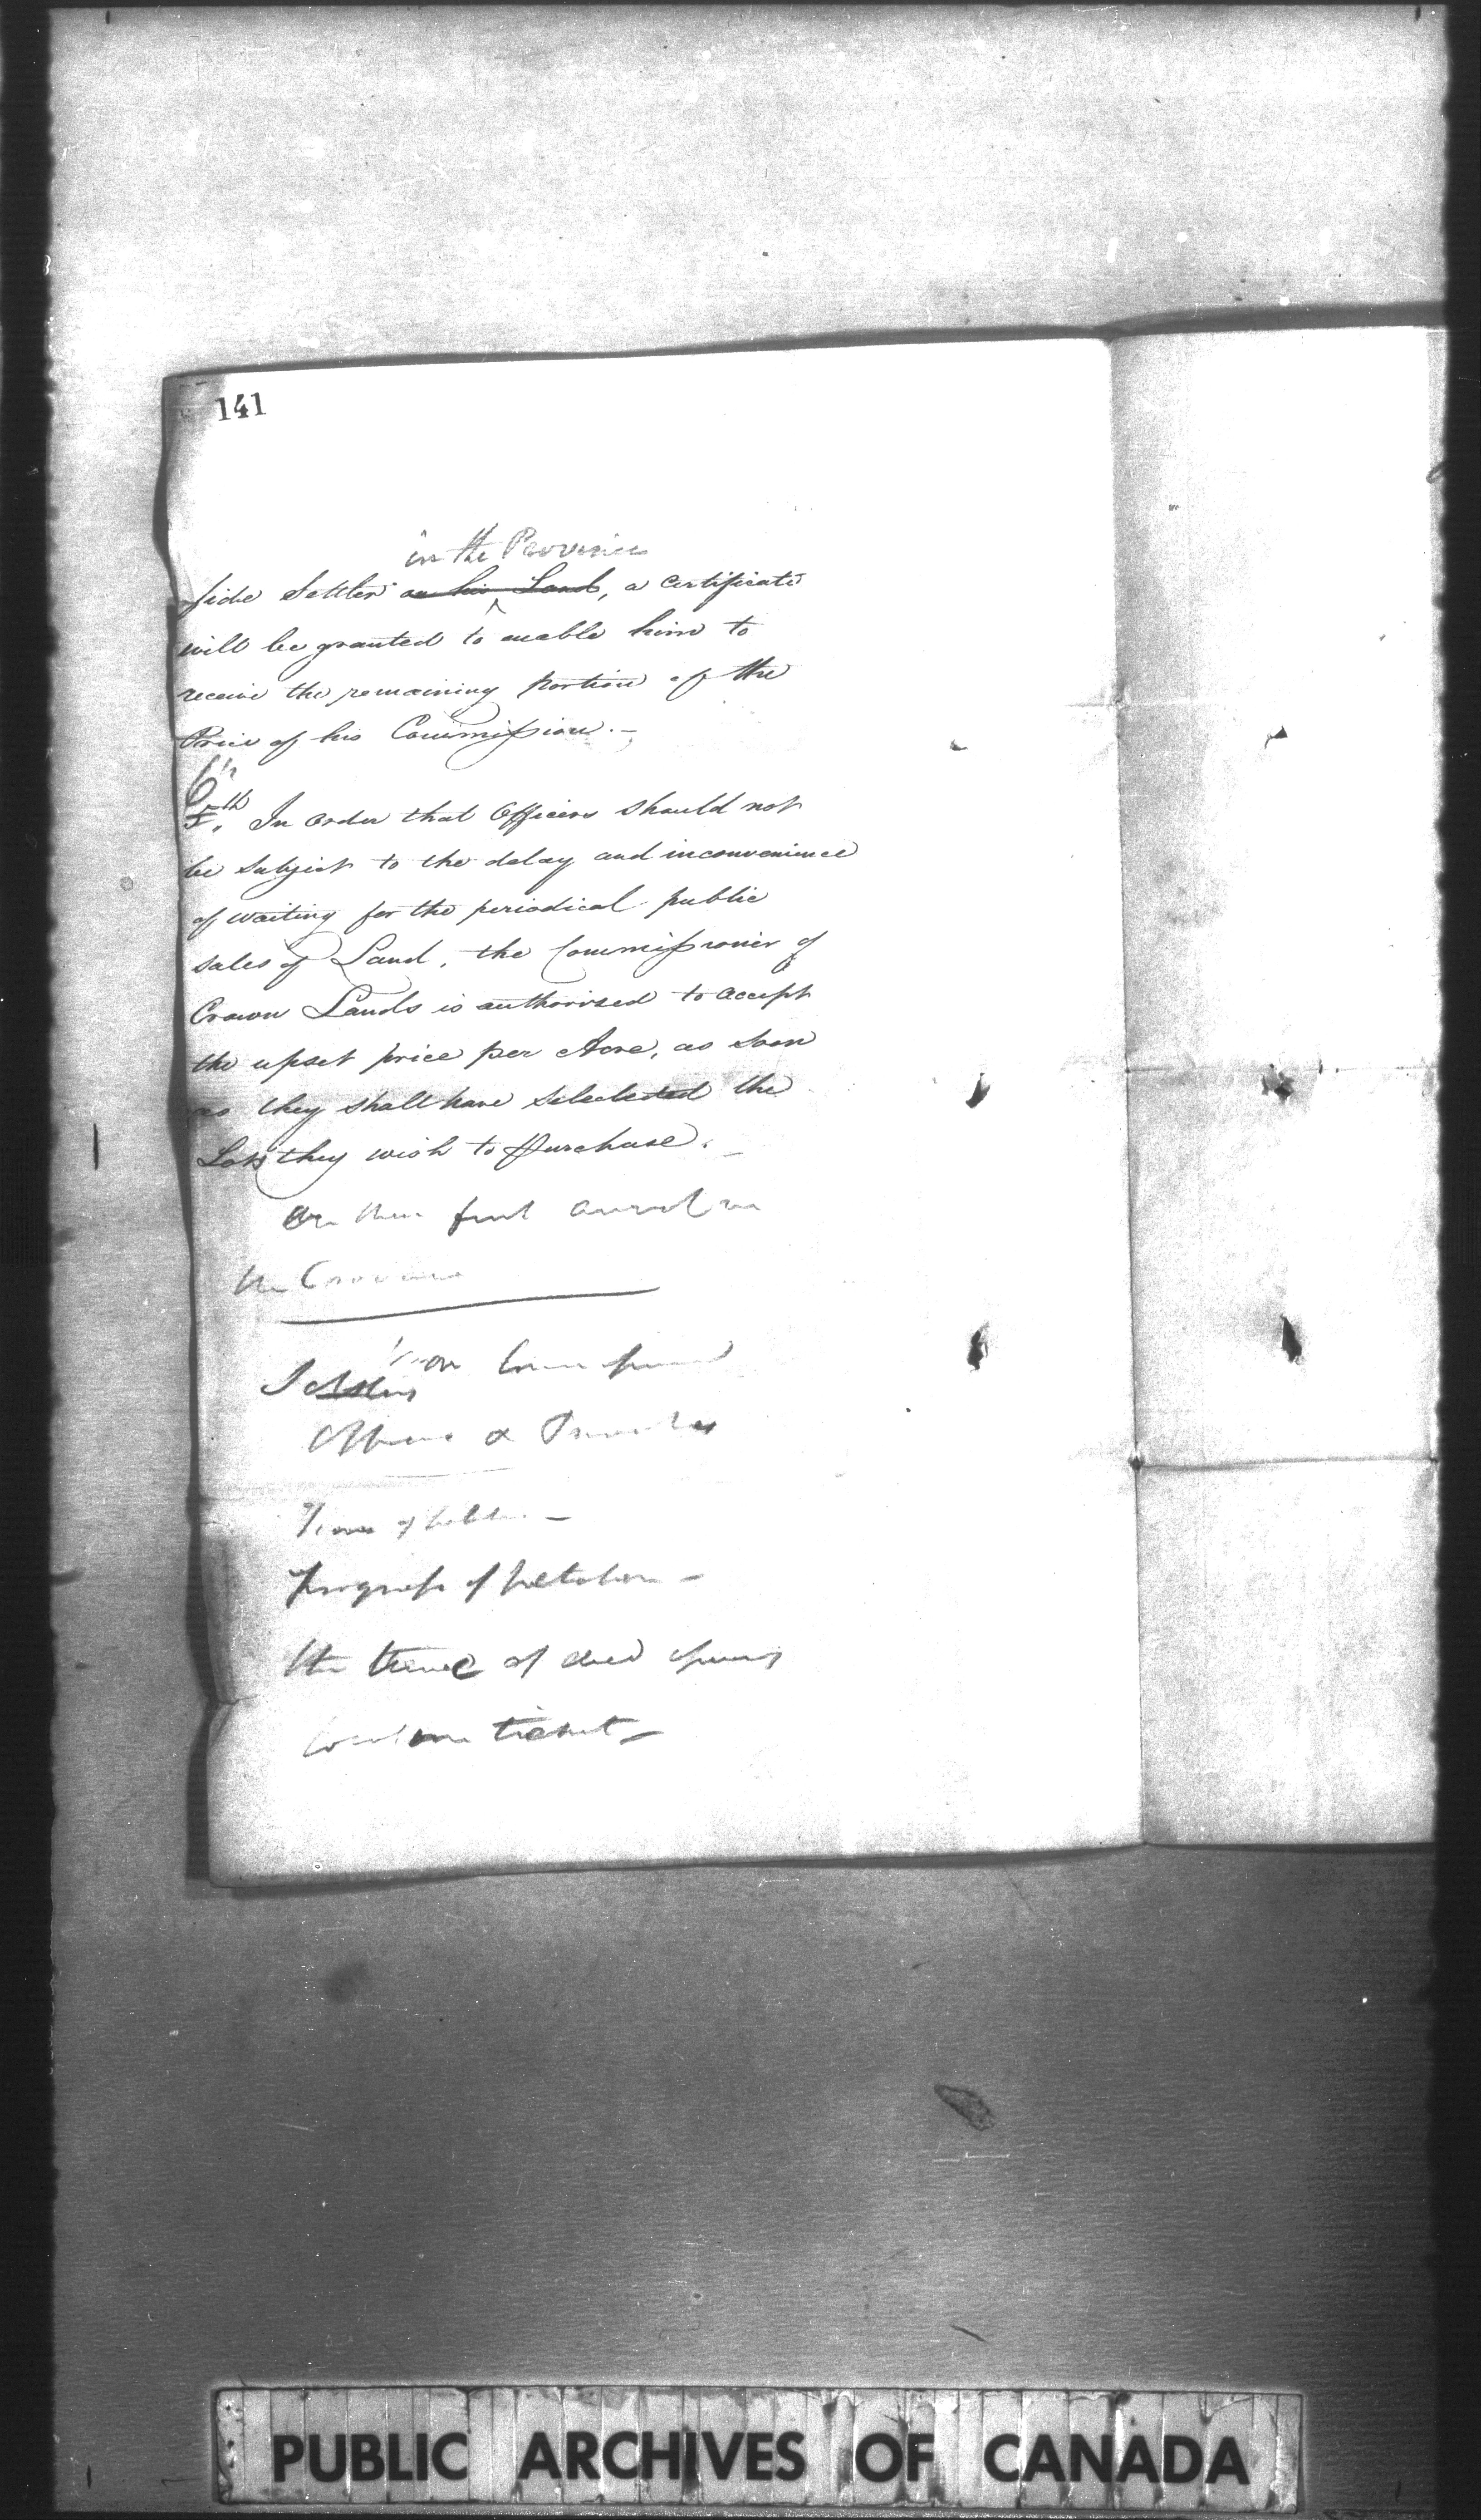 141
in the Province
fide Settler on his Land, a certificate
will be granted to enable him to
receive the remaining portion of the
Price of his Commission. -
6th
5th. In order that Officers should not
be subject to the delay and inconvenience
of waiting for the periodical public
sales of Land, the Commissioner of
Crown Lands is authorised to accept
the upset price per Acre, as soon
as they shall have selected the
Lots they wish to Purchase. -
On their first arrival in
the Province
Settlers
Progress of
the time of deed
Location ticket -
PUBLIC ARCHIVES OF CANADA